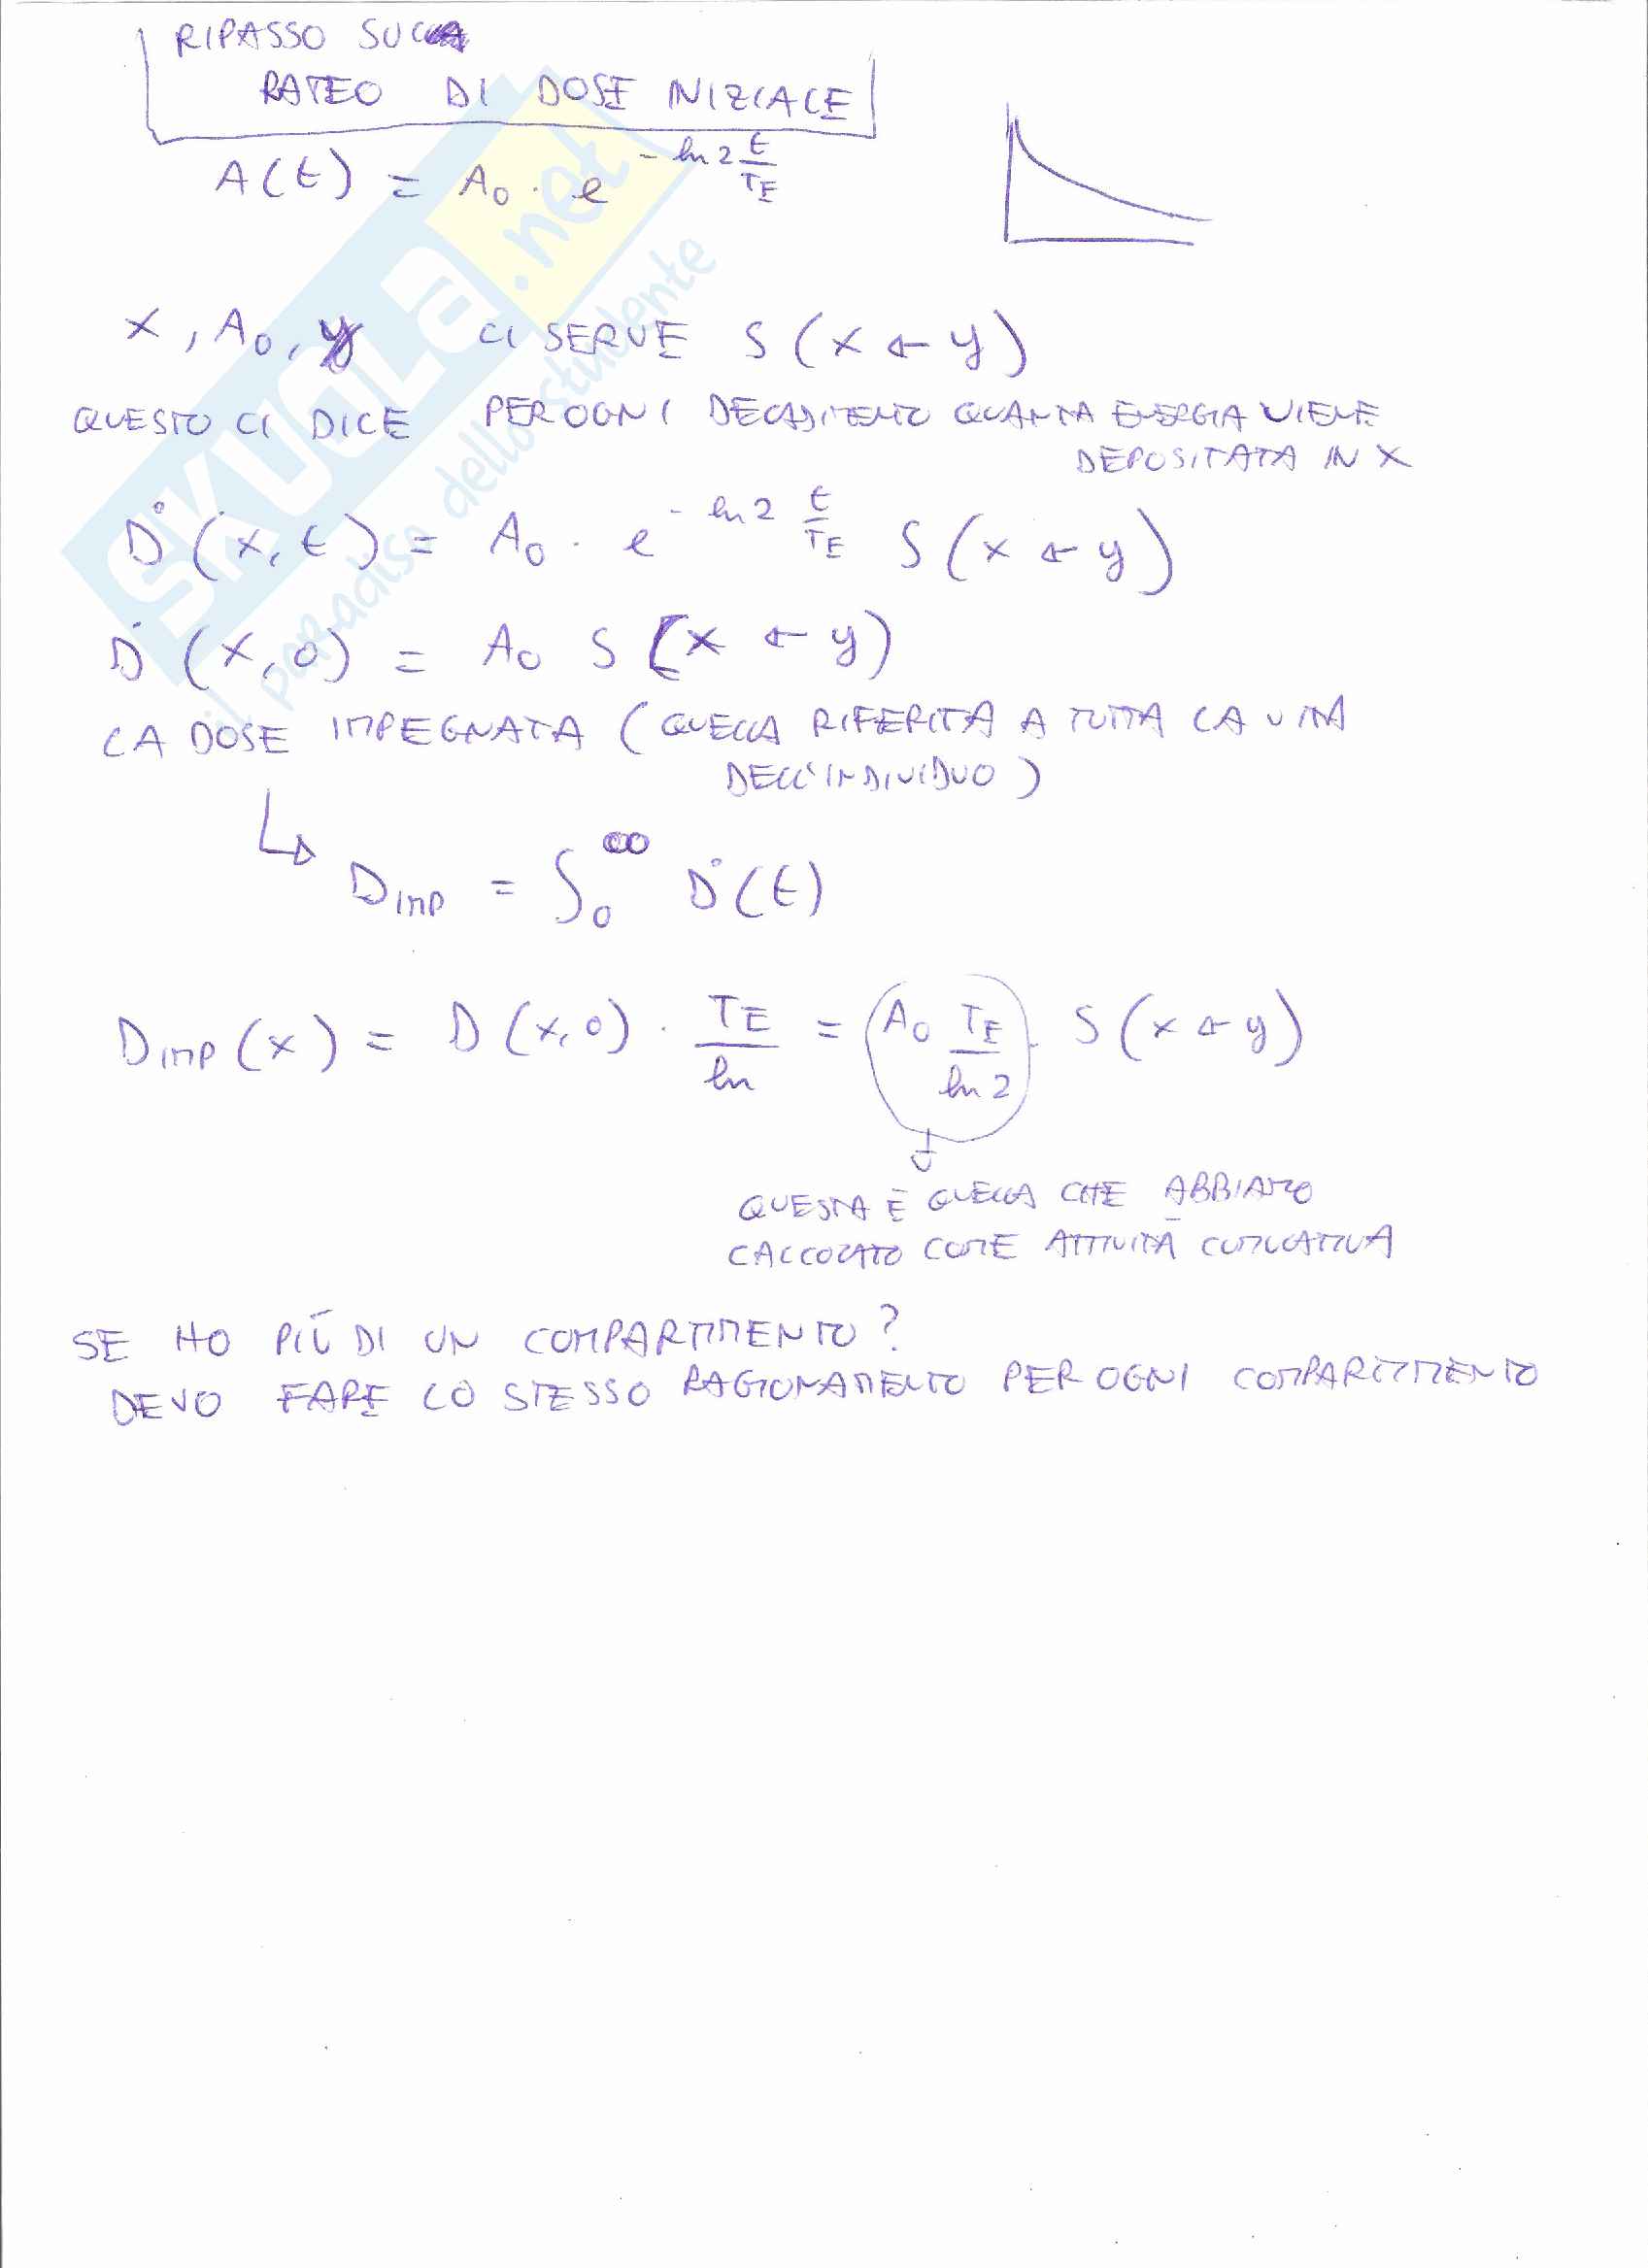 RIPASSO SULLA
RATEO DI DOSE INIZIALE
A(t) = A₀ · e^(-ln2 t/T_E)
x, A₀, y CI SERVE S(x ← y)
QUESTO CI DICE PER OGNI DECADIMENTO QUANTA ENERGIA VIENE
DEPOSITATA IN X
Ḋ(x,t) = A₀ · e^(-ln2 t/T_E) S(x ← y)
Ḋ(x,0) = A₀ S(x ← y)
LA DOSE IMPEGNATA (QUELLA RIFERITA A TUTTA LA VITA
DELL'INDIVIDUO)
↳ D_IMP = ∫₀^∞ Ḋ(t)
D_IMP(x) = D(x,0) · T_E/ln = A₀ T_E/ln2 · S(x ← y)
QUESTA È QUELLA CHE ABBIAMO
CALCOLATO COME ATTIVITÀ CUMULATIVA
SE HO PIÙ DI UN COMPARTIMENTO?
DEVO FARE LO STESSO RAGIONAMENTO PER OGNI COMPARTIMENTO
SKUOLA.net
il paradiso dello studente